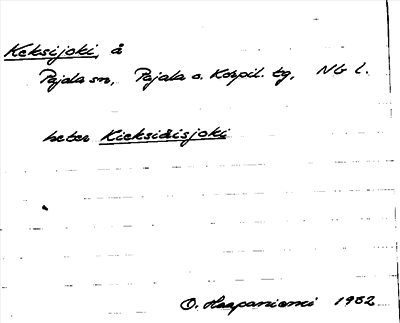 Keksijoki, å
Pajala sn, Pajala o. Korpil. tg, NB l.
heter Kieksiäisjoki
O. Haapaniemi 1952